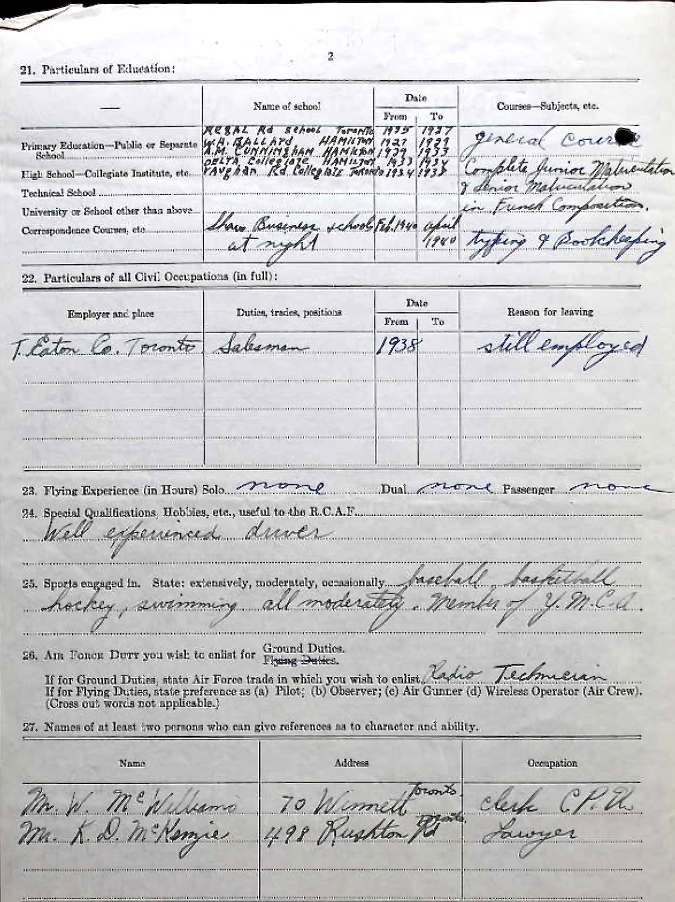 2
21. Particulars of Education:
Name of school Date From To Courses—Subjects, etc.
REGAL Rd School Toronto 1925 1927
Primary Education—Public or Separate School W.H. BALLARD HAMILTON 1927 1929 general course
A.M. CUNNINGHAM HAMILTON 1929 1933
DELTA Collegiate HAMILTON 1933 1934
High School—Collegiate Institute, etc. VAUGHAN Rd Collegiate Toronto 1934 1938 Complete Junior Matriculation
Technical School & Senior Matriculation
University or School other than above in French Composition.
Correspondence Courses, etc. Shaw Business school Feb. 1940 april
at night 1940 typing & Bookkeeping
22. Particulars of all Civil Occupations (in full):
Employer and place Duties, trades, positions Date From To Reason for leaving
T. Eaton Co. Toronto Salesman 1938 still employed
23. Flying Experience (in Hours) Solo none Dual none Passenger none
24. Special Qualifications, Hobbies, etc., useful to the R.C.A.F.
Well experienced driver
25. Sports engaged in. State: extensively, moderately, occasionally baseball, basketball
hockey, swimming all moderately. Member of Y.M.C.A.
26. AIR FORCE DUTY you wish to enlist for Ground Duties.
Flying Duties.
If for Ground Duties, state Air Force trade in which you wish to enlist Radio Technician
If for Flying Duties, state preference as (a) Pilot; (b) Observer; (c) Air Gunner (d) Wireless Operator (Air Crew).
(Cross out words not applicable.)
27. Names of at least two persons who can give references as to character and ability.
Name Address Occupation
Mr. W. McWilliams 70 Winnett Toronto clerk C.P.
Mr. K. D. McKenzie 498 Rushton Rd Toronto Lawyer